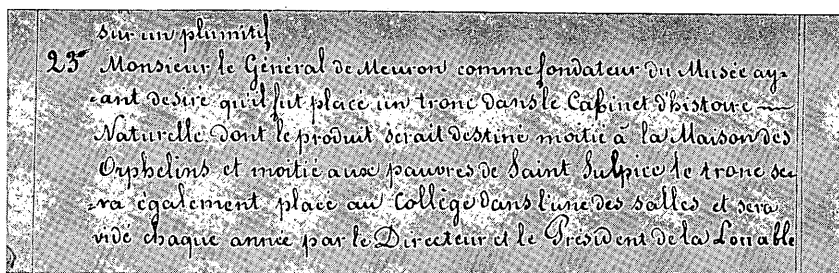 sur un plumitif
23° Monsieur le Général de Meuron comme fondateur du Musée ay=
=ant desiré qu'il fut placé un tronc dans le Cabinet d'histoire —
Naturelle dont le produit serait destiné moitié à la Maison des
Orphelins et moitié aux pauvres de Saint Sulpice le tronc se=
=ra également placé au Collège dans l'une des salles et sera
vidé chaque année par le Directeur et le Président de la Louable